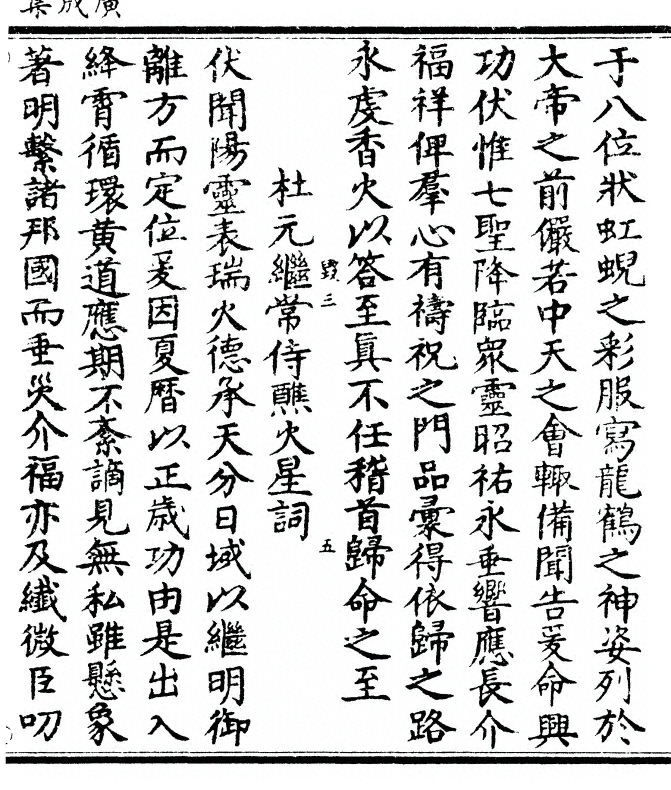 廣成集
于八位狀虹蜺之彩服寫龍鶴之神姿列於
大帝之前儼若中天之會輙備聞告爰命興
功伏惟七聖降臨衆靈昭祐永垂響應長介
福祥俾羣心有禱祝之門品彚得依歸之路
永虔香火以答至眞不任稽首歸命之至
杜元繼常侍醮火星詞
毀三
五
伏聞陽靈表瑞火德承天分日域以繼明御
離方而定位爰因夏曆以正歲功由是出入
絳霄循環黄道應期不紊謫見無私雖懸象
著明繫諸邦國而垂災介福亦及纖微臣叨